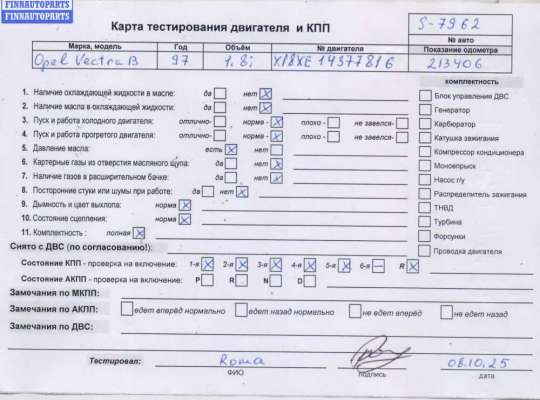 FINNAUTOPARTS
FINNAUTOPARTS
Карта тестирования двигателя и КПП
S-7962
№ авто
Марка, модель Год Объём № двигателя Показание одометра
Opel Vectra B 97 1.8i X18XE 14377816 213406
комплектность
1. Наличие охлаждающей жидкости в масле: да нет X
2. Наличие масла в охлаждающей жидкости: да нет X
3. Пуск и работа холодного двигателя: отлично- норма - X плохо - не завелся-
4. Пуск и работа прогретого двигателя: отлично- норма - X плохо - не завелся-
5. Давление масла: есть X нет
6. Картерные газы из отверстия масляного щупа: да нет X
7. Наличие газов в расширительном бачке: да нет X
8. Посторонние стуки или шумы при работе: да нет X
9. Дымность и цвет выхлопа: норма X
10. Состояние сцепления: норма X
11. Комплектность : полная X
Блок управления ДВС
Генератор
Карбюратор
Катушка зажигания
Компрессор кондиционера
Моновпрыск
Насос г/у
Распределитель зажигания
ТНВД
Турбина
Форсунки
Проводка двигателя
Снято с ДВС (по согласованию!):
Состояние КПП - проверка на включение: 1-я X 2-я X 3-я X 4-я X 5-я X 6-я — R X
Состояние АКПП - проверка на включение: P R N D
Замечания по МКПП:
Замечания по АКПП: едет вперёд нормально едет назад нормально не едет вперёд не едет назад
Замечания по ДВС:
Тестировал: Roma 08.10.25
ФИО подпись дата